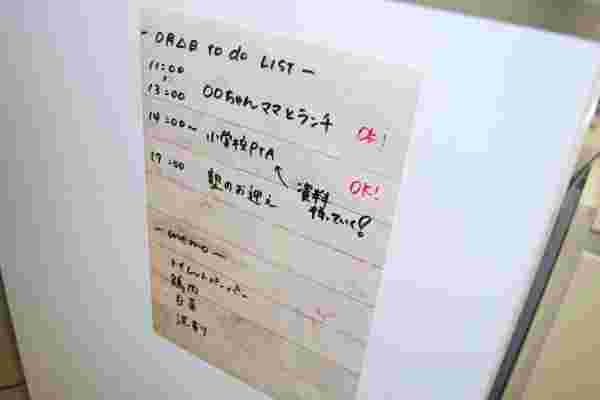 -○月△日 to do LIST-
11:00
~
13:00 ○○ちゃんママとランチ OK!
14:00~ 小学校PTA OK!
↖資料
持っていく!
17:00 塾のお迎え
-memo-
トイレットペーパー
鶏肉
白菜
洗剤